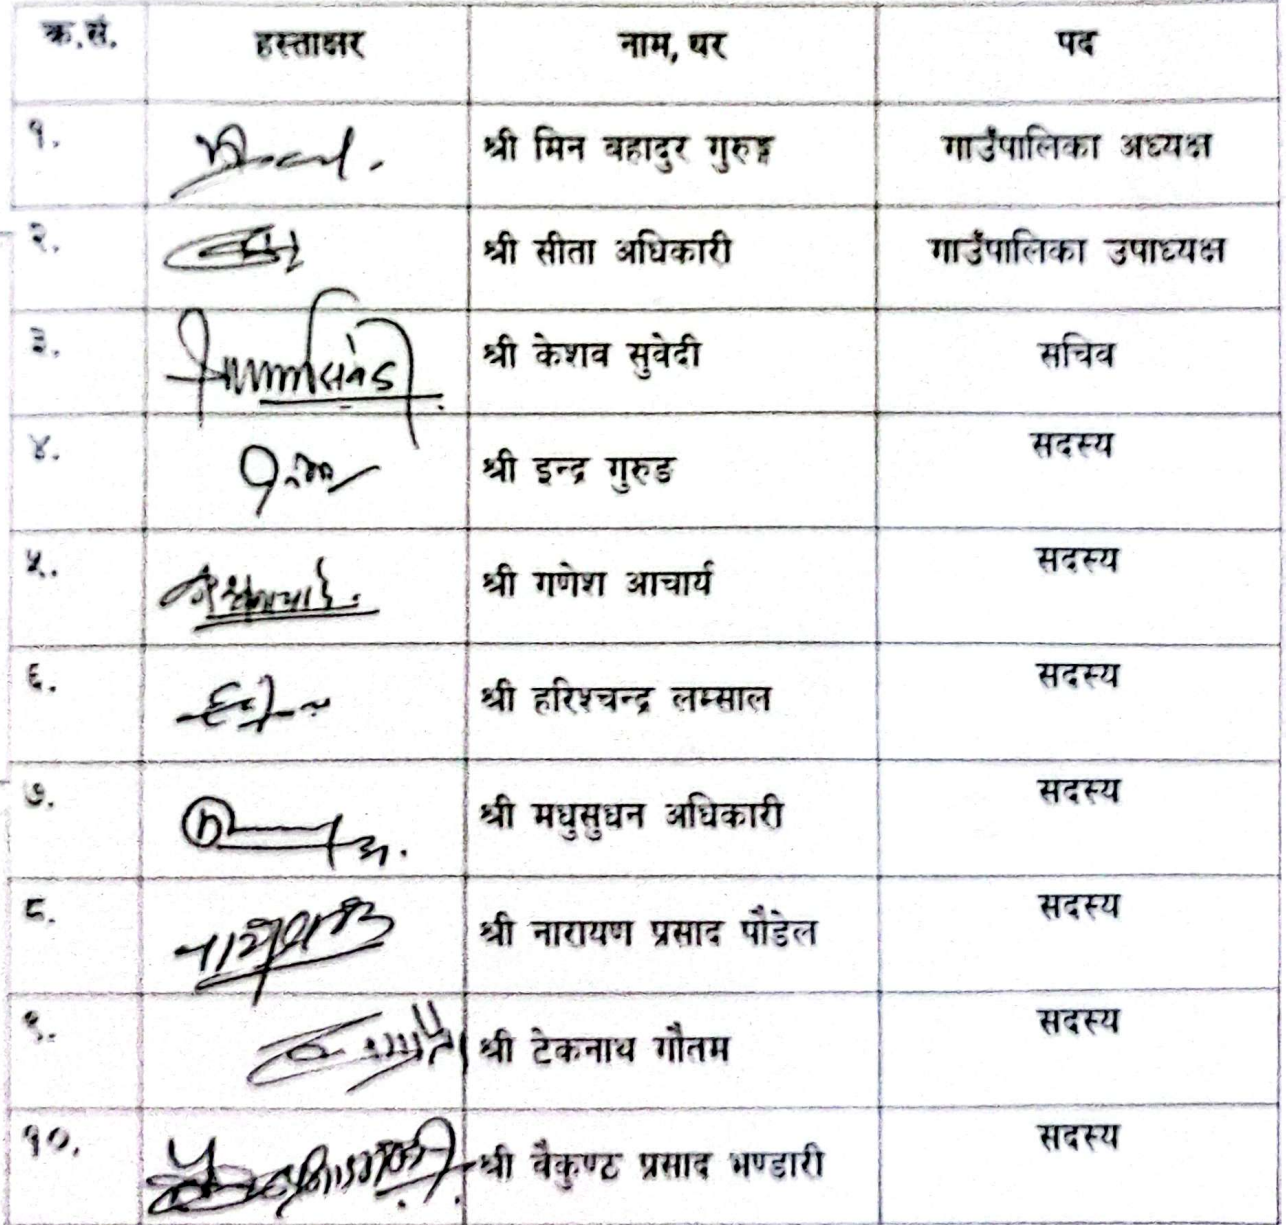 क्र.सं. हस्ताक्षर नाम, थर पद
१. श्री मिन बहादुर गुरुङ्ग गाउँपालिका अध्यक्ष
२. श्री सीता अधिकारी गाउँपालिका उपाध्यक्ष
३. श्री केशव सुवेदी सचिव
४. श्री इन्द्र गुरुङ सदस्य
५. श्री गणेश आचार्य सदस्य
६. श्री हरिश्चन्द्र लम्साल सदस्य
७. श्री मधुसुधन अधिकारी सदस्य
८. श्री नारायण प्रसाद पौडेल सदस्य
९. श्री टेकनाथ गौतम सदस्य
१०. श्री वैकुण्ठ प्रसाद भण्डारी सदस्य